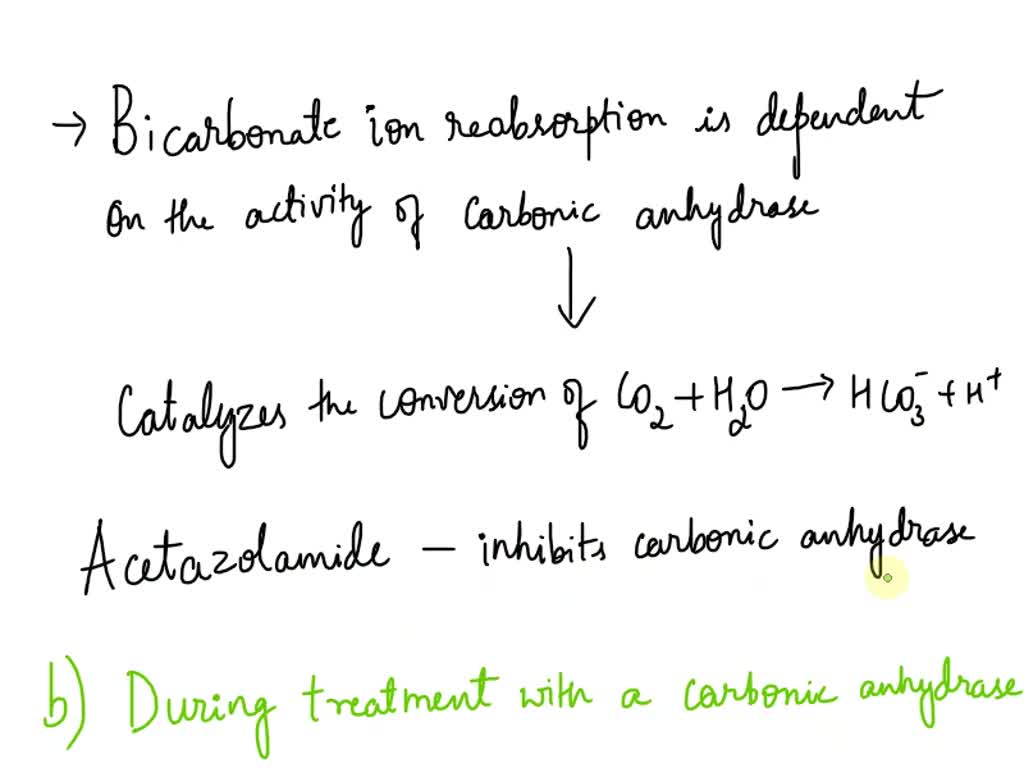 → Bicarbonate ion reabsorption is dependent
on the activity of carbonic anhydrase
↓
Catalyzes the conversion of CO₂ + H₂O → HCO₃⁻ + H⁺
Acetazolamide – inhibits carbonic anhydrase
b) During treatment with a carbonic anhydrase